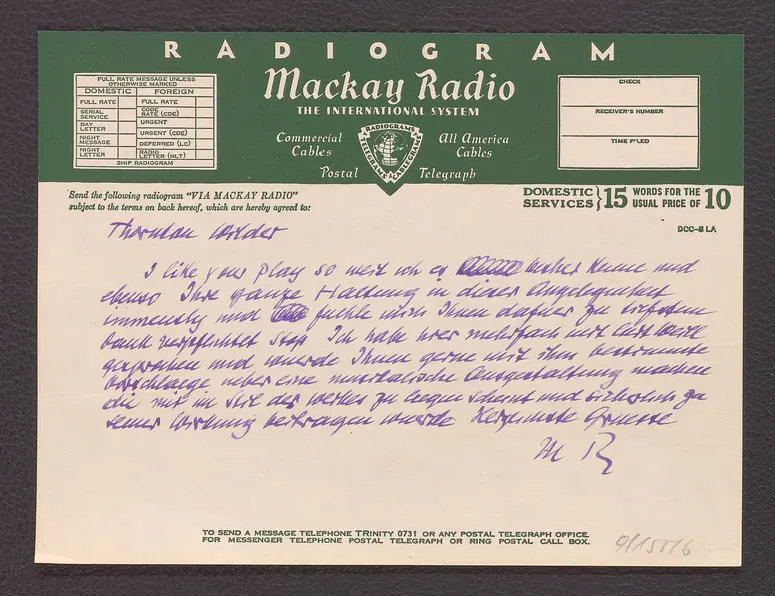 RADIOGRAM
Mackay Radio
THE INTERNATIONAL SYSTEM
Commercial Cables
All America Cables
Postal Telegraph
FULL RATE MESSAGE UNLESS
OTHERWISE MARKED
DOMESTIC FOREIGN
FULL RATE FULL RATE
SERIAL SERVICE CODE RATE (CDE)
DAY LETTER URGENT
URGENT (CDE)
NIGHT MESSAGE DEFERRED (LC)
NIGHT LETTER RADIO LETTER (NLT)
SHIP RADIOGRAM
RADIOGRAMS
TELEGRAMS CABLEGRAMS
CHECK
RECEIVER'S NUMBER
TIME FILED
Send the following radiogram "VIA MACKAY RADIO"
subject to the terms on back hereof, which are hereby agreed to:
DOMESTIC SERVICES } 15 WORDS FOR THE USUAL PRICE OF 10
DCC-5 LA
Thornton Wilder
I like your play so weit ich es bisher kenne und
ebenso Ihre ganze Haltung in dieser Angelegenheit
immensely und fuehle mich Ihnen dafuer zu tiefstem
Dank verpflichtet Stop Ich habe hier mehrfach mit Curt Weill
gesprochen und wuerde Ihnen gerne mit ihm bestimmte
Vorschlaege ueber eine musikalische Ausgestaltung machen
die mir im Stil des Werkes zu liegen scheint und sicherlich zu
seiner Wirkung beitragen wuerde Herzlichste Gruesse
M R
TO SEND A MESSAGE TELEPHONE TRINITY 0731 OR ANY POSTAL TELEGRAPH OFFICE.
FOR MESSENGER TELEPHONE POSTAL TELEGRAPH OR RING POSTAL CALL BOX.